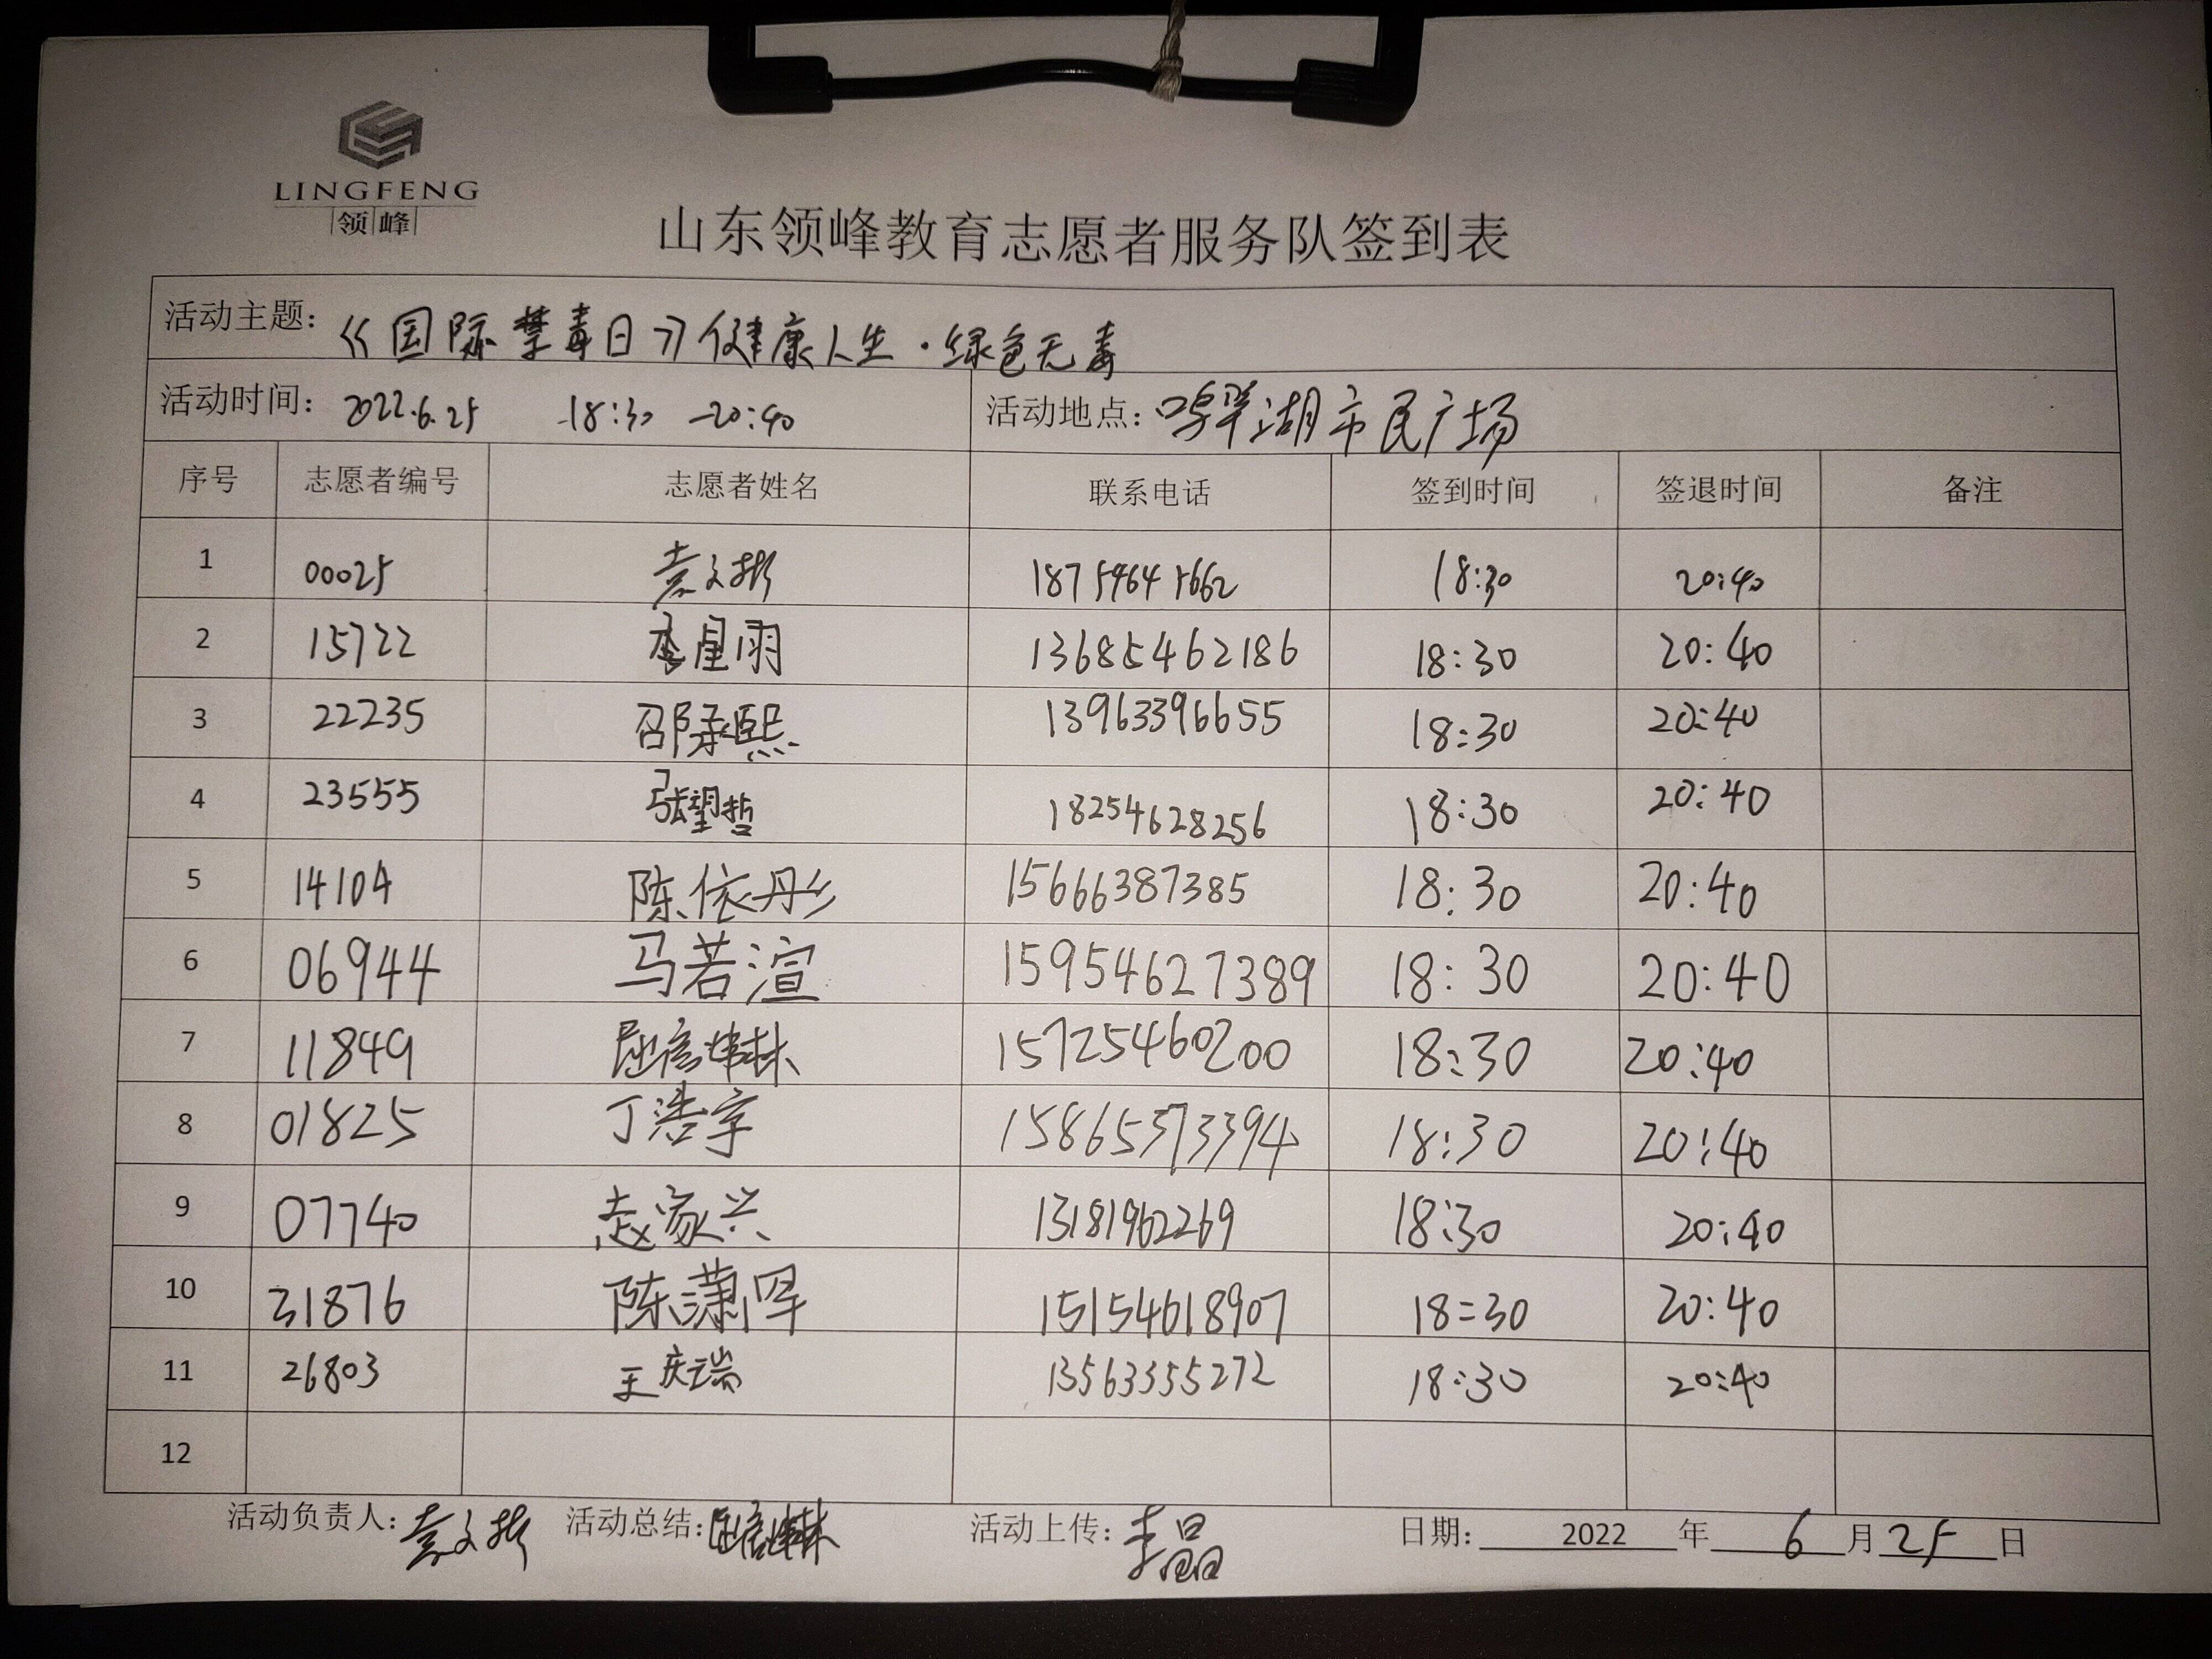 LINGFENG
领峰
山东领峰教育志愿者服务队签到表
活动主题：《国际禁毒日》健康人生·绿色无毒
活动时间：2022.6.25 18:30-20:40 活动地点： 湖市民广场
序号 志愿者编号 志愿者姓名 联系电话 签到时间 签退时间 备注
1 00025 袁文彬 18:30 20:40
2 15722 李星雨 13685462186 18:30 20:40
3 22235 邵承熙 13963396655 18:30 20:40
4 23555 张望哲 18254628256 18:30 20:40
5 14104 陈依彤 15666387385 18:30 20:40
6 06944 马若渲 15954627389 18:30 20:40
7 11849 15725460200 18:30 20:40
8 01825 丁浩宇 15865373394 18:30 20:40
9 07740 赵家兴 13181962269 18:30 20:40
10 31876 陈潇罕 15154618907 18:30 20:40
11 26803 王庆瑞 13563355272 18:30 20:40
12
活动负责人：袁文彬 活动总结： 活动上传：李晶 日期： 2022 年 6 月 25 日